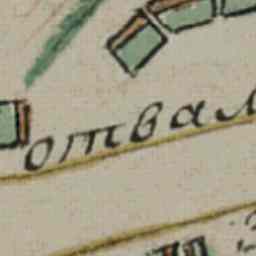 отвал